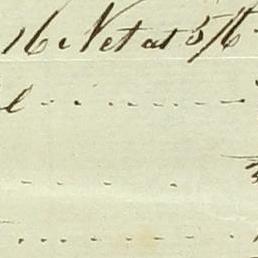 16 Net at 5/6